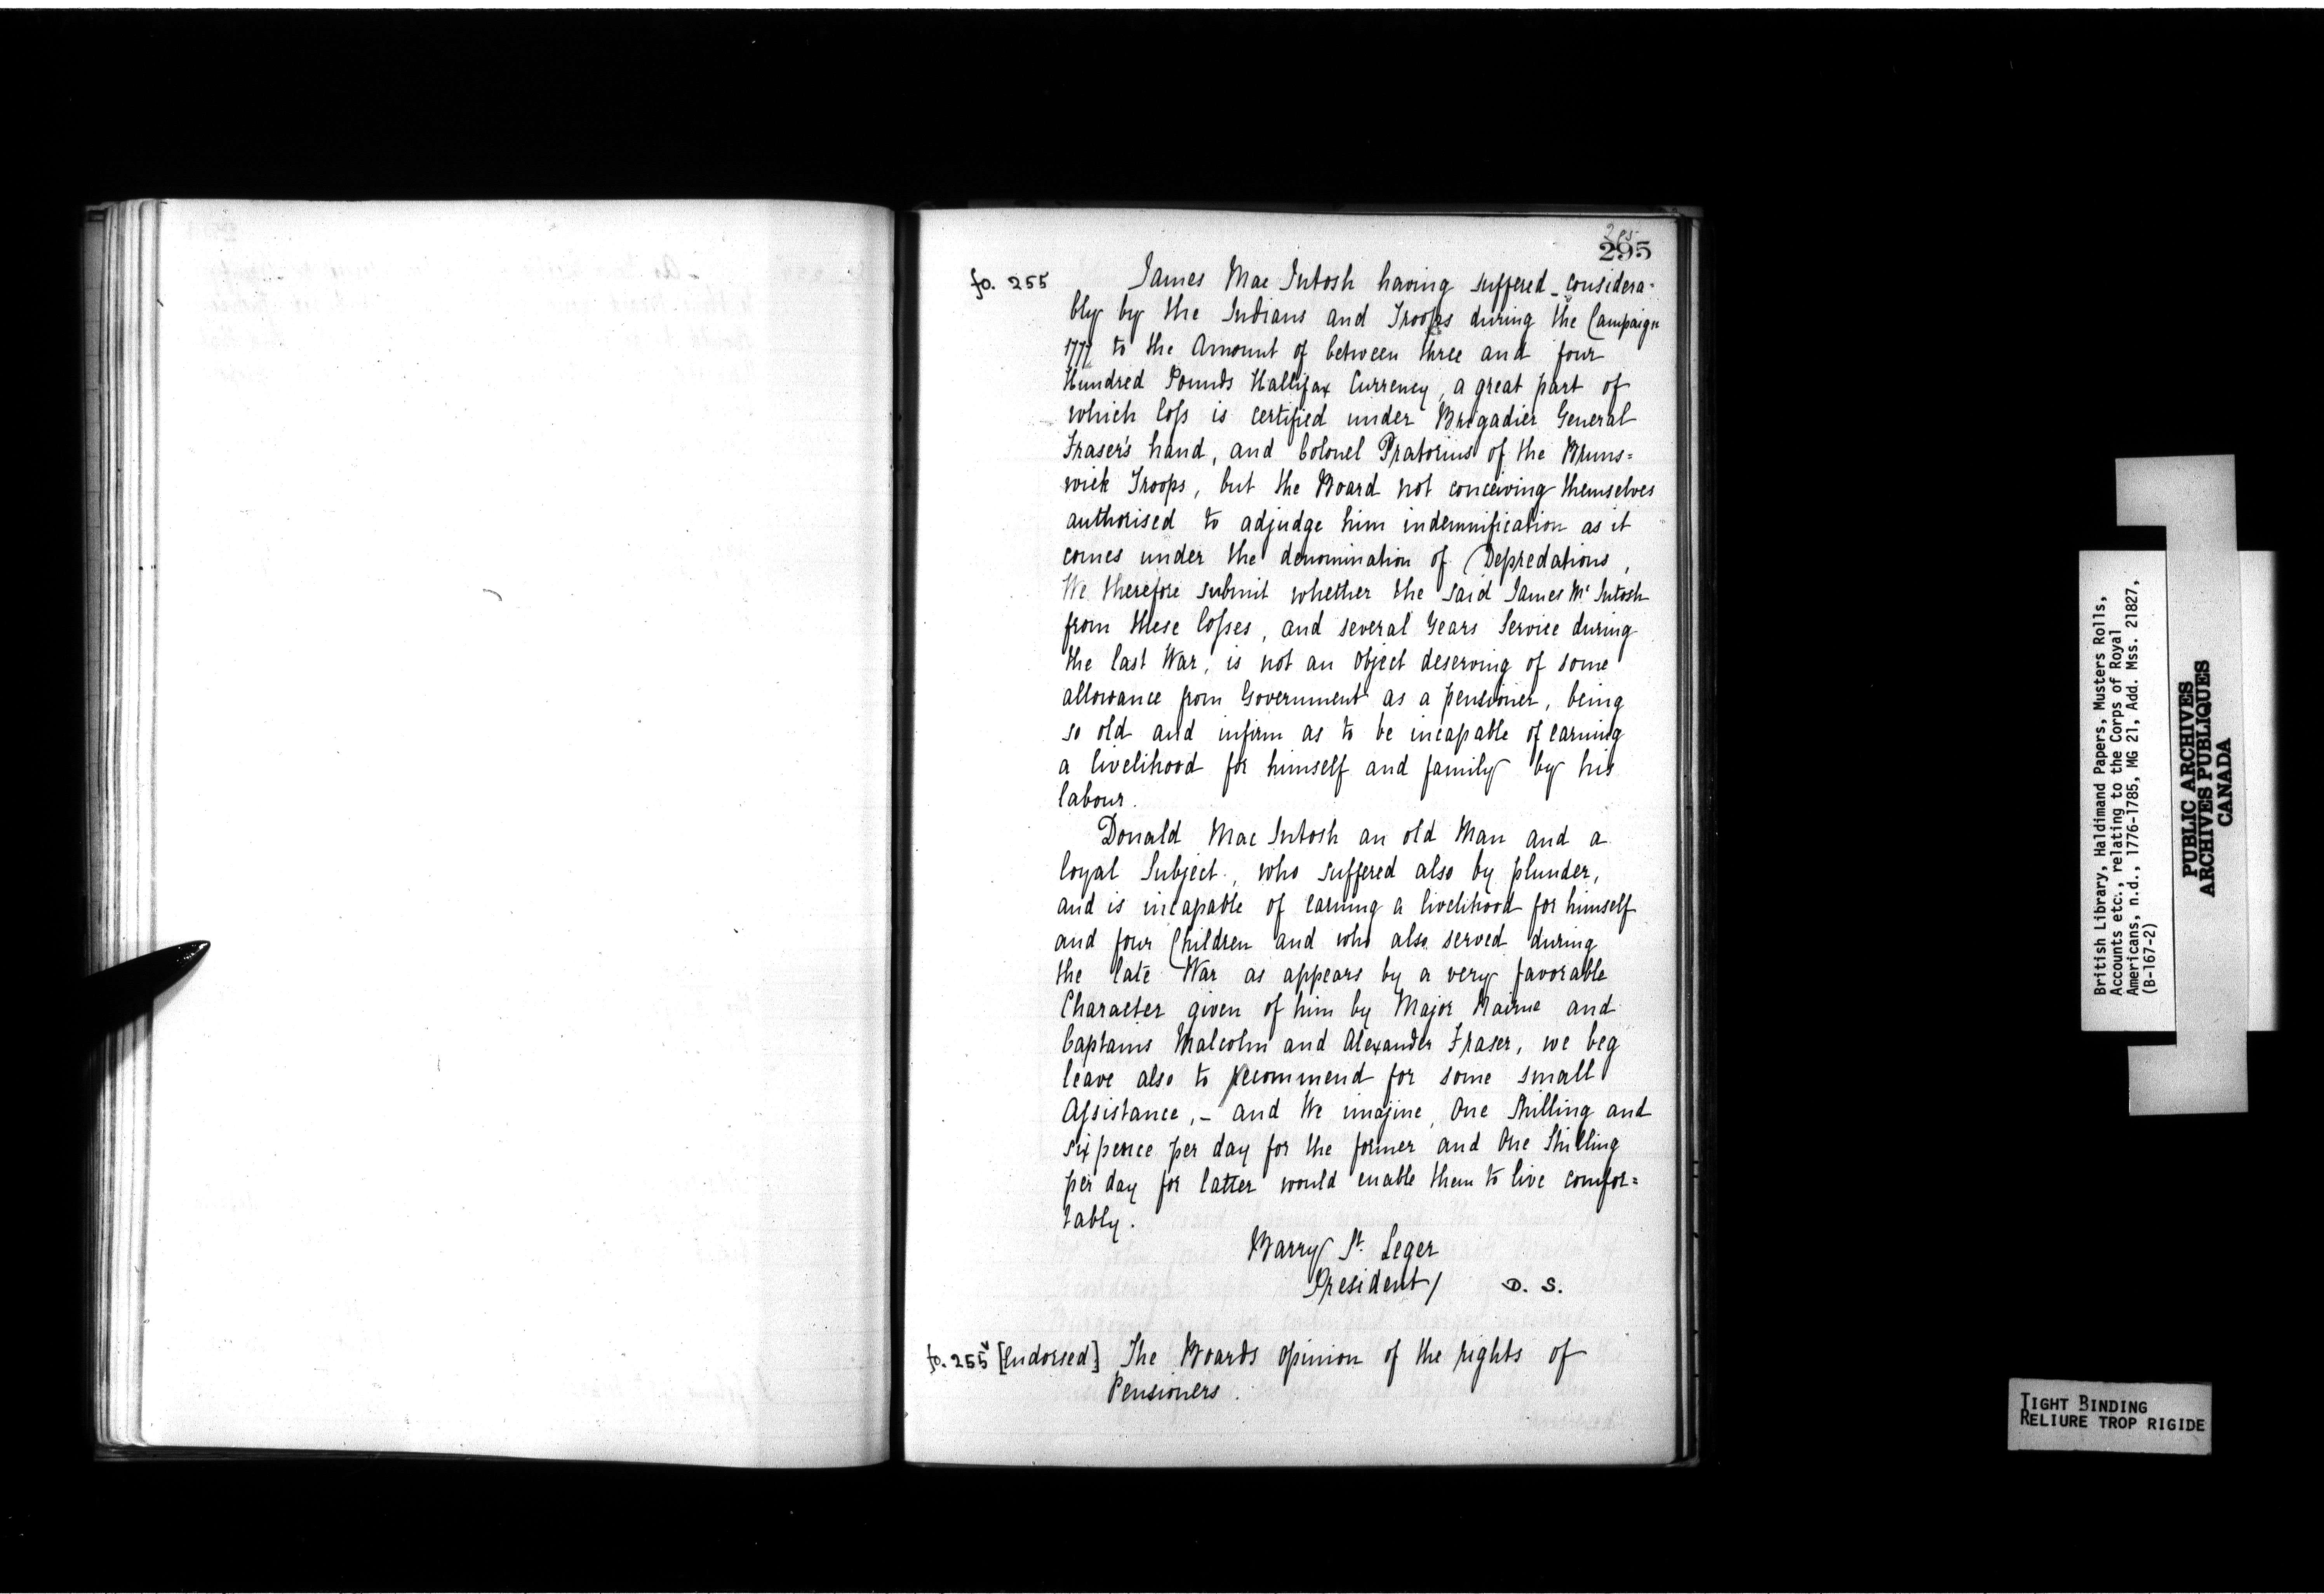 295
295
fo. 255 James Mac Intosh having suffered considera-
bly by the Indians and Troops during the Campaign
1777 to the Amount of between three and four
Hundred Pounds Hallifax Currency, a great part of
which loss is certified under Brigadier General
Fraser's hand, and Colonel Pratorius of the Bruns=
wick Troops, but the Board not conceiving themselves
authorised to adjudge him indemnification as it
comes under the denomination of Depredations,
We therefore submit whether the said James Mc Intosh
from these losses, and several Years Service during
the last War, is not an Object deserving of some
allowance from Government as a pensioner, being
so old and infirm as to be incapable of earning
a livelihood for himself and family by his
labour.
Donald Mac Intosh an old Man and a
loyal Subject, who suffered also by plunder,
and is incapable of earning a livelihood for himself
and four Children and who also served during
the late War as appears by a very favorable
Character given of him by Major Nairne and
Captains Malcolm and Alexander Fraser, we beg
leave also to recommend for some small
Assistance, - and We imagine, One Shilling and
sixpence per day for the former and One Shilling
per day for latter would enable them to live comfor=
tably.
Barry St. Leger
President/ D. S.
fo. 255v [Endorsed] The Boards opinion of the rights of
Pensioners.
British Library, Haldimand Papers, Musters Rolls,
Accounts etc., relating to the Corps of Royal
Americans, n.d., 1776-1785, MG 21, Add. Mss. 21827,
(B-167-2)
PUBLIC ARCHIVES
ARCHIVES PUBLIQUES
CANADA
TIGHT BINDING
RELIURE TROP RIGIDE